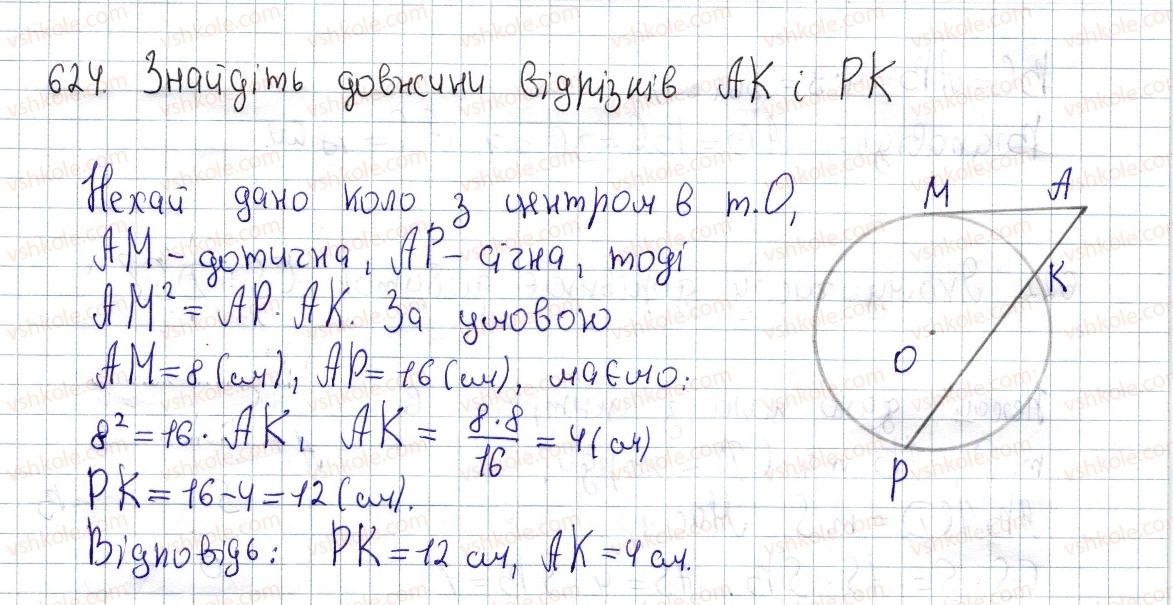 624. Знайдіть довжини відрізків AK і PK
Нехай дано коло з центром в т.О,
AM - дотична, AP - січна, тоді
AM² = AP · AK. За умовою
AM = 8 (см), AP = 16 (см), маємо:
8² = 16 · AK, AK = 8·8/16 = 4 (см)
PK = 16 - 4 = 12 (см).
Відповідь: PK = 12 см, AK = 4 см.
M A
K
O
P
vshkole.com